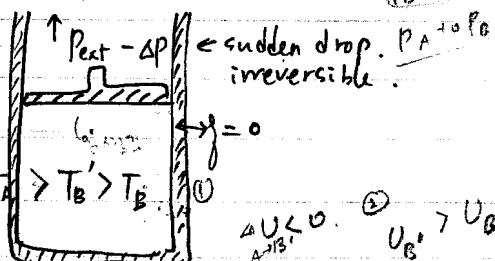 ↑ Pext - ΔP ← sudden drop. PA to PB
irreversible.
q = 0
> TB' > TB ①
ΔU < 0. ② UB' > UB
A→B'